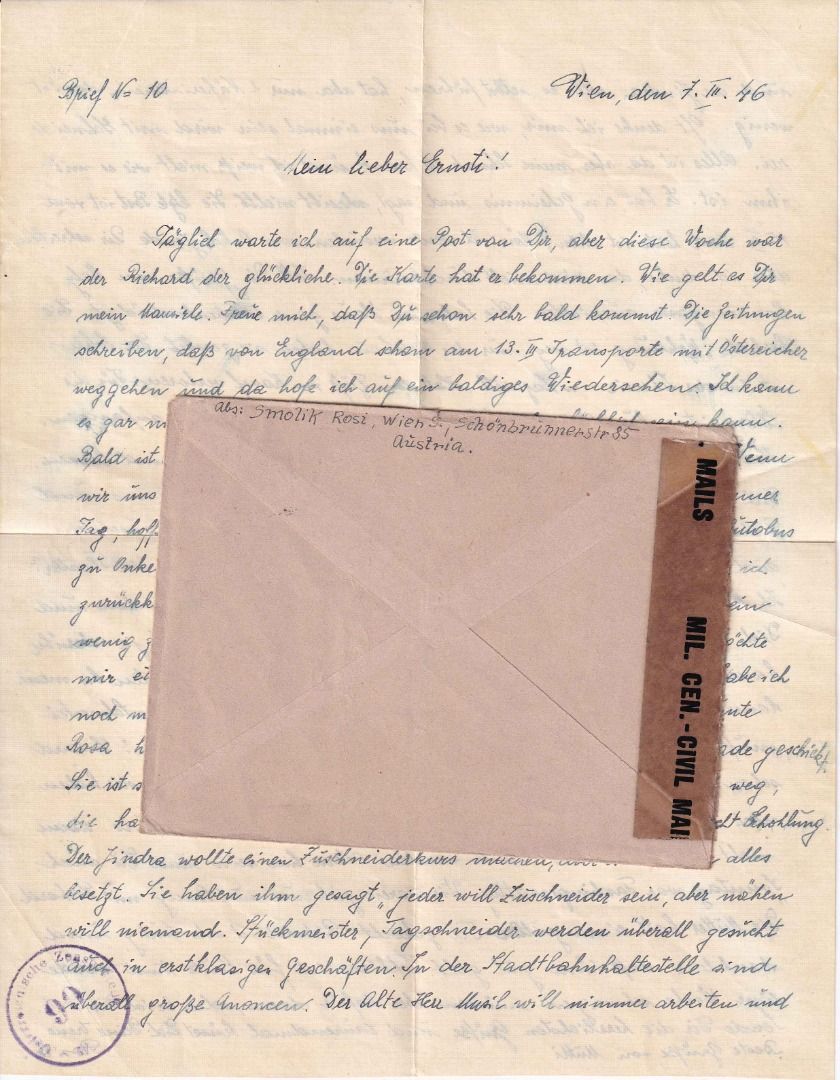 Brief No 10
Wien, den 7. III. 46
Mein lieber Ernsti!
Täglich warte ich auf eine Post von Dir, aber diese Woche war
der Richard der glückliche. Die Karte hat er bekommen. Wie geht es Dir
mein . Freue mich, daß Du schon sehr bald kommst. Die Zeitungen
schreiben, daß von England schon am 13. III Transporte mit Östereicher
weggehen und da hofe ich auf ein baldiges Wiedersehen. Ich kann
es gar kann.
Bald ist Wenn
wir uns
Tag, Autobus
zu Onke ich
zurückk ein
wenig z öchte
mir ei abe ich
noch m
Rosa h ade geschickt.
Sie ist s weg,
die ha Erhohlung.
Der Jindra wollte einen Zuschneiderkurs machen, alles
besetzt. Sie haben ihm gesagt „jeder will Zuschneider sein, aber nähen
will niemand. Stückmeister, Tagschneider werden überall gesucht
auch in erstklasigen Geschäften. In der Stadtbahnhaltestelle sind
überall große Anoncen. Der Alte Herr Musil will nimmer arbeiten und
Abs: Smolik Rosi, Wien 5., Schönbrunnerstr 85
Austria.
MAILS
MIL. CEN.-CIVIL MAI
99